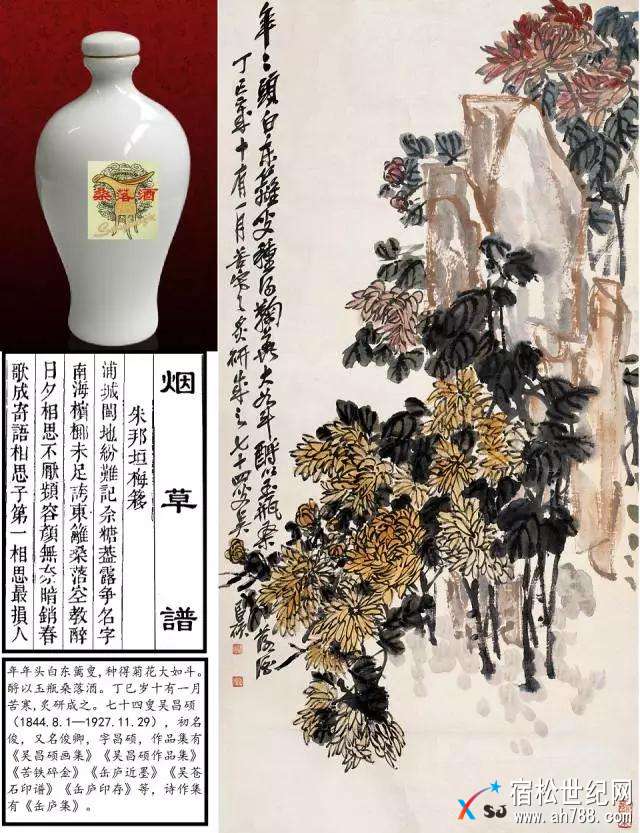 桑落酒
年〻頭白東籬叟種得鞠華大如斗酹以玉瓶桑
落酒
丁巳歲十有一月苦寒炙研成之七十四叟吴
昌碩
烟草譜
朱邦垣梅簃
浦城閩地紛難記佘糖蓋露爭名字
南海檳榔未足誇東籬桑落空教醉
日夕相思不厭頻容顏無奈暗銷春
歌成寄語相思子第一相思最損人
年年头白东篱叟,种得菊花大如斗。
酹以玉瓶桑落酒。丁巳岁十有一月
苦寒,炙研成之。七十四叟吴昌硕
(1844.8.1—1927.11.29),初名
俊,又名俊卿,字昌硕,作品集有
《吴昌硕画集》《吴昌硕作品集》
《苦铁碎金》《缶庐近墨》《吴苍
石印谱》《缶庐印存》等,诗作集
有《缶庐集》。
SJ
宿松世纪网
www.ah788.com